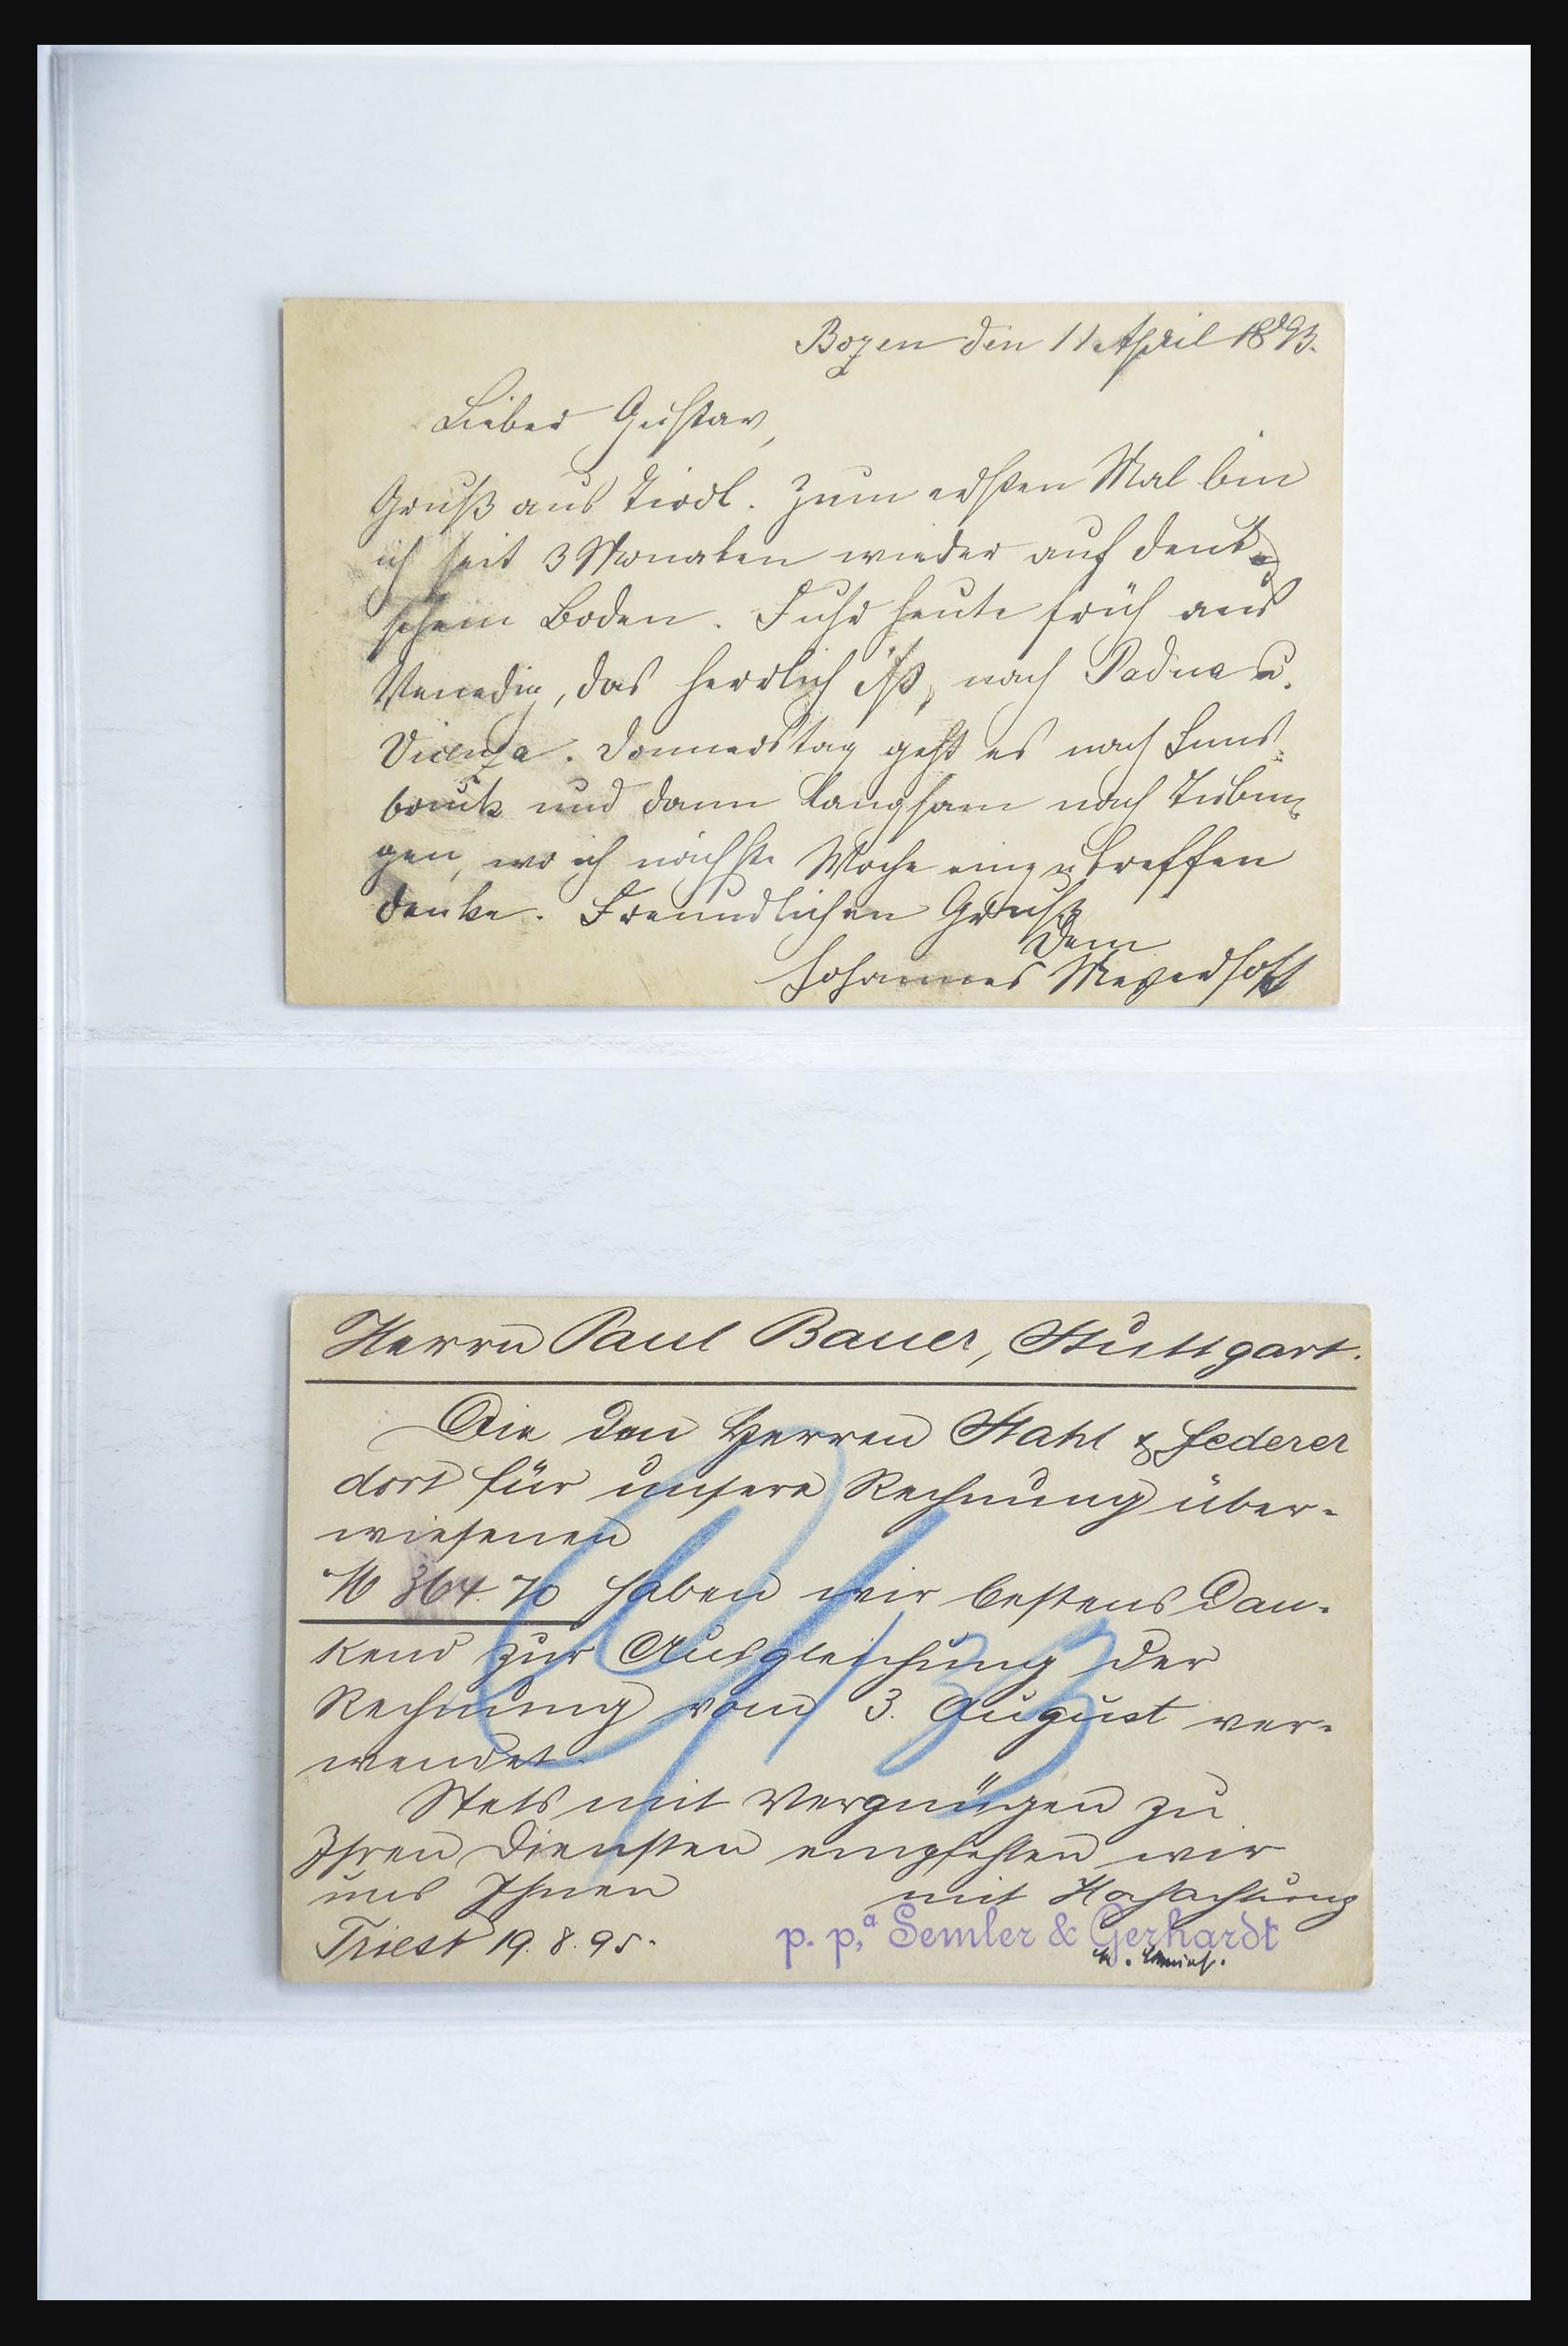 Bozen den 11 April 1893.
Lieber Gustav,
Gruß aus Tirol. Zum ersten Mal bin
ich seit 3 Monaten wieder auf deut-
schem Boden. Fuhr heute früh aus
Venedig, das herrlich ist, nach Padua u.
Vicenza. Donnerstag geht es nach Inns-
bruck und dann langsam nach Tübin-
gen, wo ich nächste Woche einzutreffen
denke. Freundlichen Gruß
Dein
Johannes Meyerhoff
Herrn Paul Bauer, Stuttgart.
Die den Herren Stahl & Federer
dort für unsere Rechnung über-
wiesenen
M 364.70 haben wir bestens dan-
kend zur Ausgleichung der
Rechnung vom 3. August ver-
wendet.
Stets mit Vergnügen zu
Ihren Diensten empfehlen wir
uns Ihnen mit Hochachtung
Triest 19.8.95. p. p.a Semler & Gerhardt